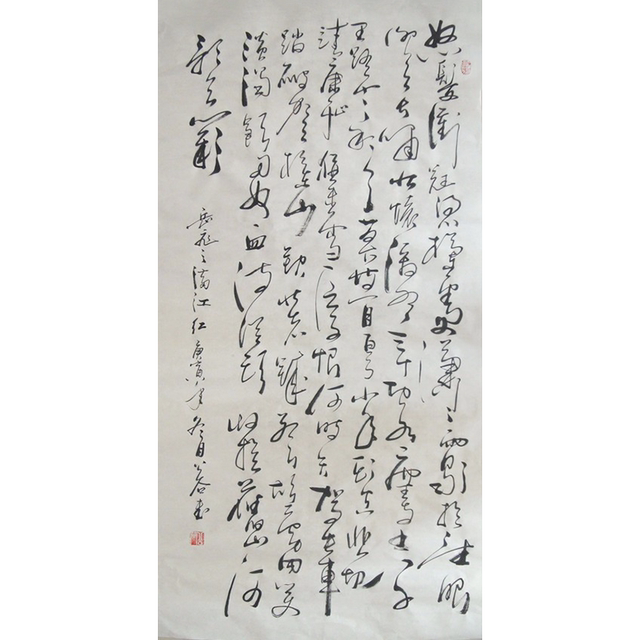 怒髮衝冠憑欄處瀟瀟雨歇抬望眼
仰天長嘯壯懷激烈三十功名塵與土八千
里路雲和月莫等閒白了少年頭空悲切
靖康恥猶未雪臣子恨何時滅駕長車
踏破賀蘭山缺壯志飢餐胡虜肉笑
談渴飲匈奴血待從頭收拾舊山河
朝天闕
岳飛之滿江红庚寅年冬月书